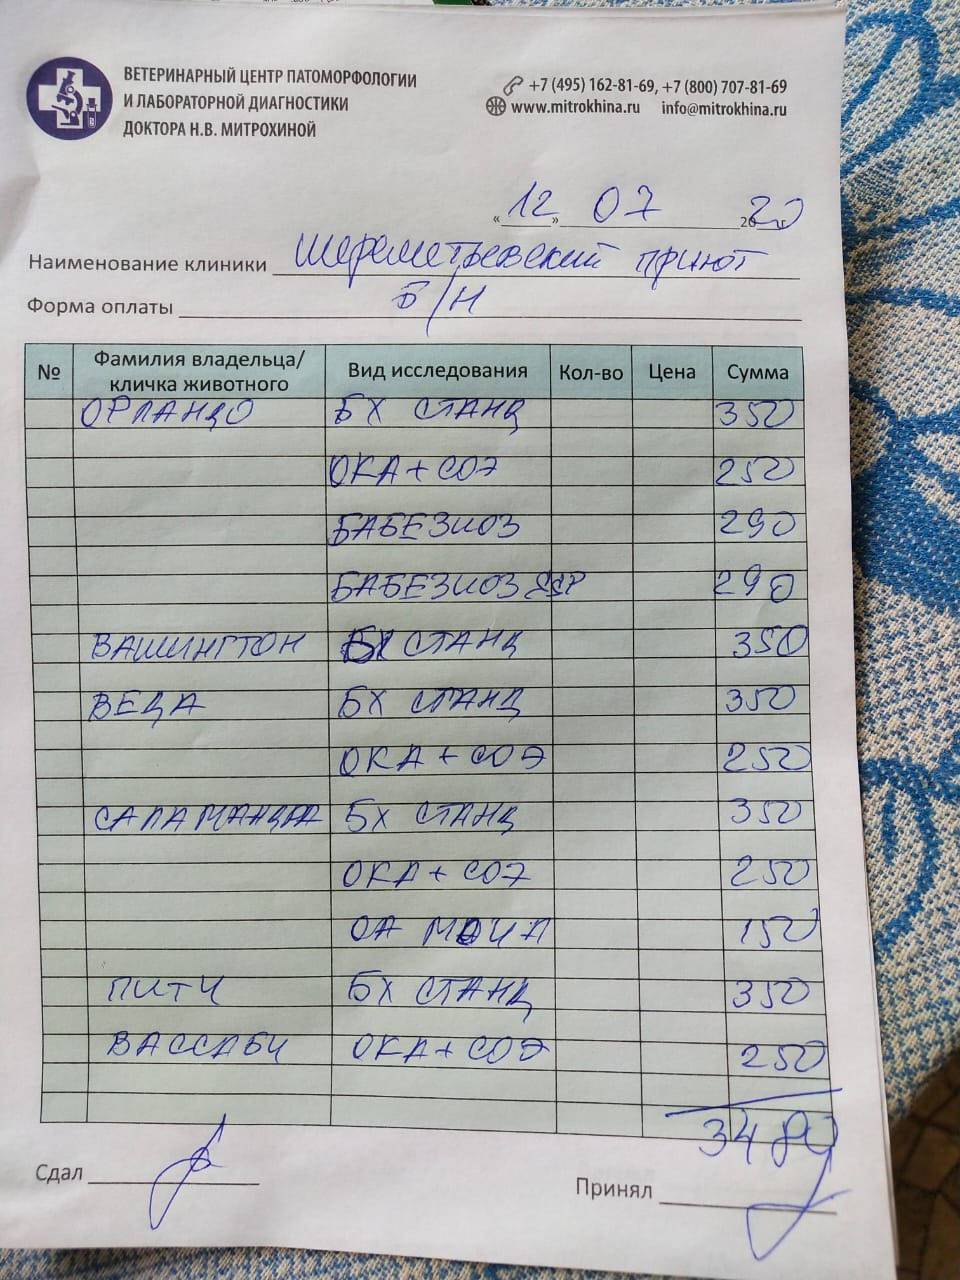 ВЕТЕРИНАРНЫЙ ЦЕНТР ПАТОМОРФОЛОГИИ
И ЛАБОРАТОРНОЙ ДИАГНОСТИКИ
ДОКТОРА Н.В. МИТРОХИНОЙ
+7 (495) 162-81-69, +7 (800) 707-81-69
www.mitrokhina.ru info@mitrokhina.ru
«12» 07 2020
Наименование клиники Шереметьевский приют
Форма оплаты Б/Н
№ Фамилия владельца/кличка животного Вид исследования Кол-во Цена Сумма
ОРЛАНДО БХ СТАНД 350
ОКА+СОЭ 250
БАБЕЗИОЗ 290
БАБЕЗИОЗ 290
ВАШИНГТОН БХ СТАНД 350
ВЕДА БХ СТАНД 350
ОКА+СОЭ 250
САЛАМАНДРА БХ СТАНД 350
ОКА+СОЭ 250
ОА МОЧИ 150
ПИТЧ БХ СТАНД 350
ВАССАБИ ОКА+СОЭ 250
3480
Сдал
Принял